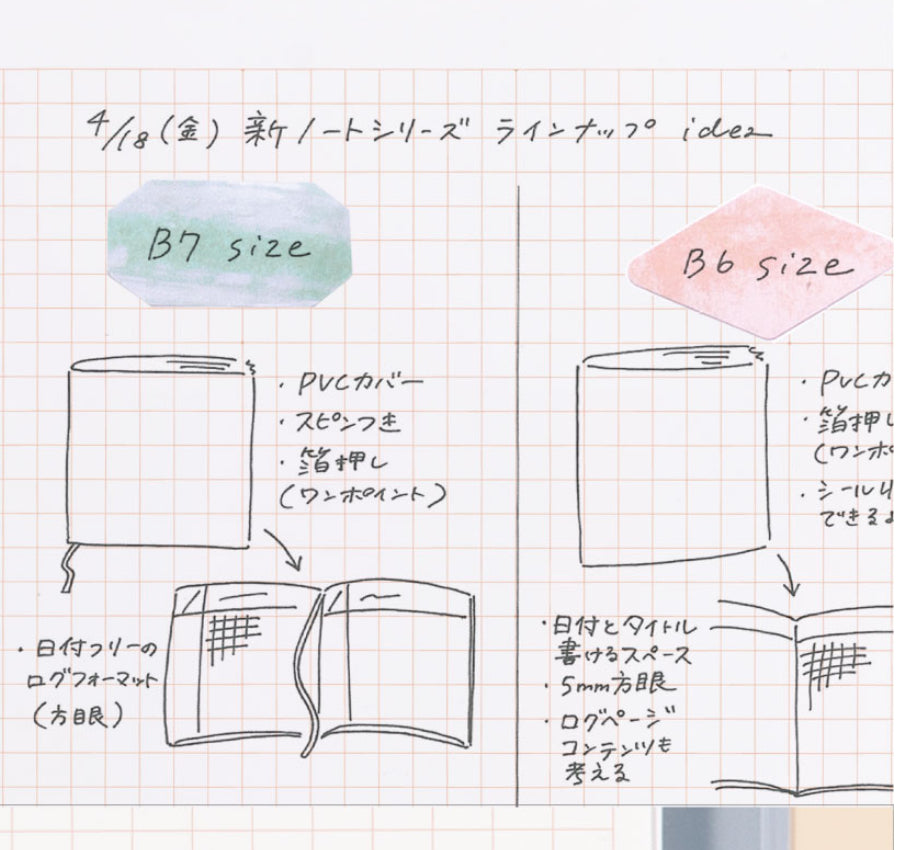 4/18(金) 新ノートシリーズ ラインナップ idea
B7 size
・PVCカバー
・スピンつき
・箔押し
(ワンポイント)
・日付フリーの
ログフォーマット
(方眼)
B6 size
・PVCカ
・箔押し
(ワンポ
・シール
できる
・日付とタイトル
書けるスペース
・5mm方眼
・ログページ
コンテンツも
考える